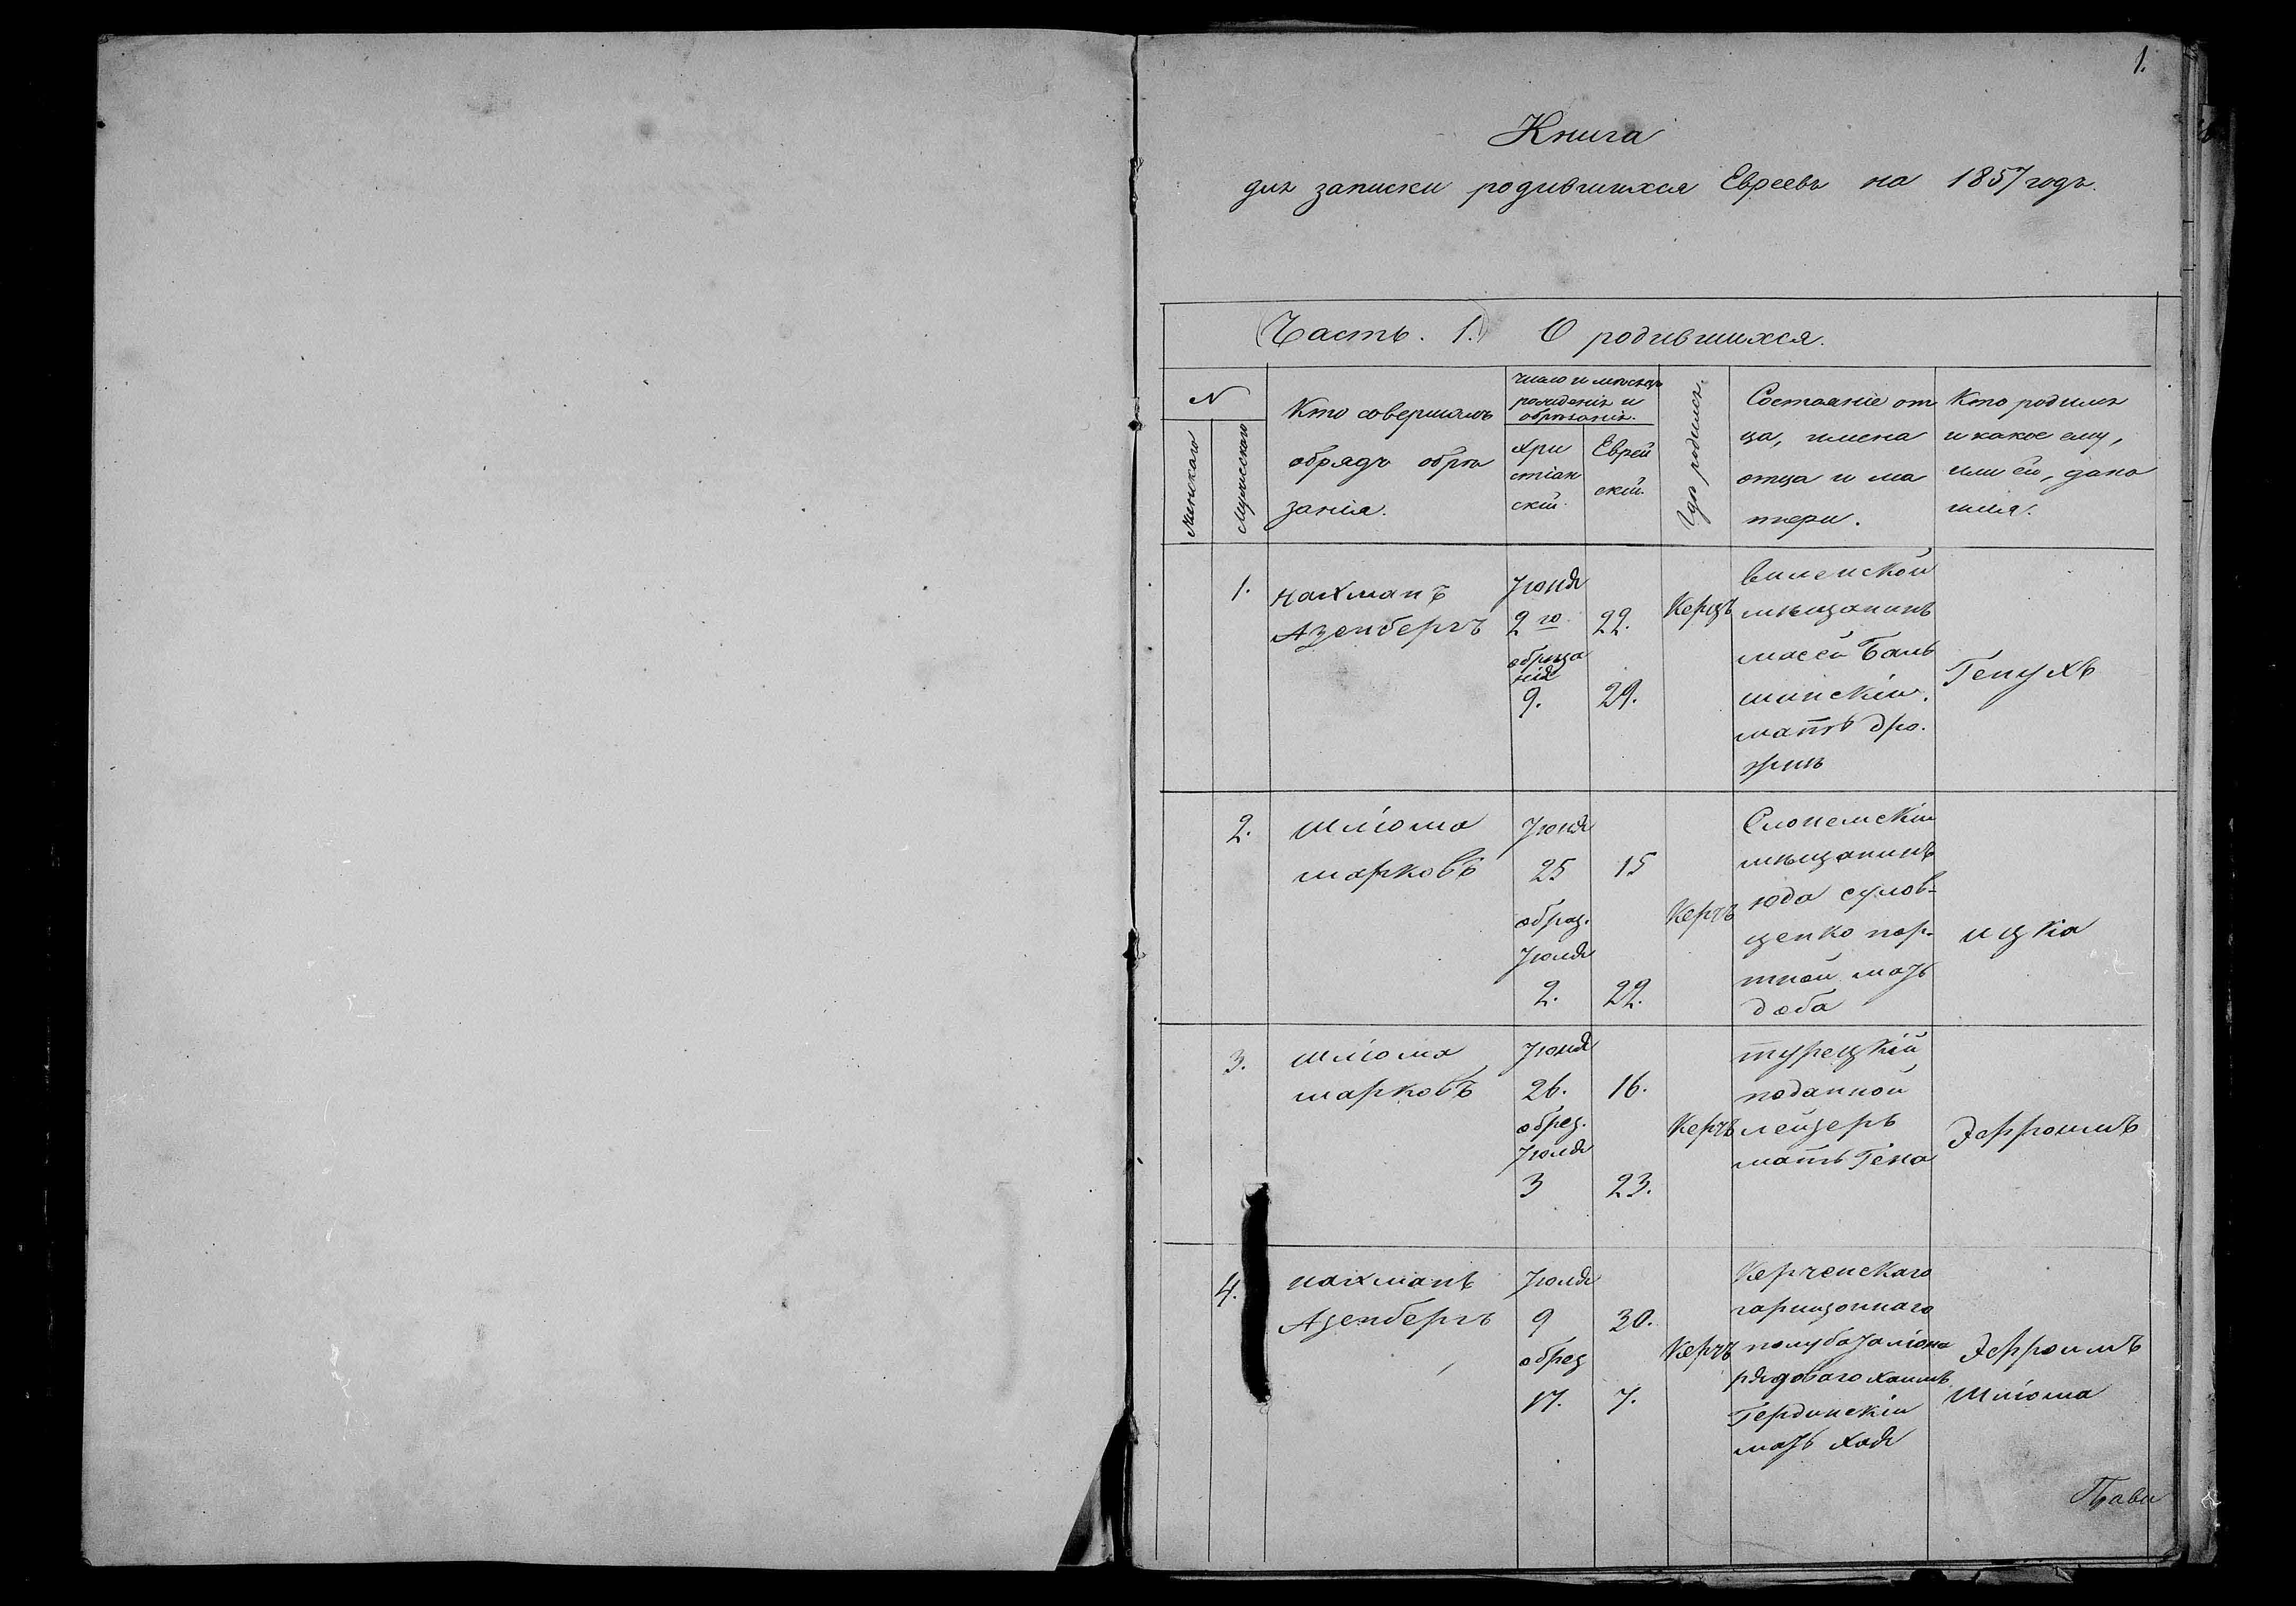 1.
Книга
для записки родившихся Евреевъ на 1857 годъ.
Часть. 1. О родившихся.
N
Женскаго
Мужескаго
Кто совершалъ
обрядъ обрѣ
занія.
число и мѣсяцъ
рожденія и
обрѣзанія.
Хри
стіан
скій.
Еврей
скій.
Гдѣ родился.
Состояніе от
ца, имена
отца и ма
тери.
Кто родился
и какое ему,
или ей, дано
имя.
1.
нахманъ
Азенбергъ
Июня
2го 22.
обрѣза
нія
9. 29.
Керчъ
виленской
мѣщанинъ
мать
Генухъ
2.
Шліома
марковъ
Июня
25 15
обрѣз.
Июля
2. 22.
Керчъ
Слонемскій
мѣщанинъ
юда
пор-
тной мать
доба
ицка
3.
Шліома
марковъ
Июня
26. 16.
обрез.
Июля
3 23.
Керчъ
турецкій
поданной
лейзеръ
мать Гена
Эфроимъ
4.
нахманъ
Азенбергъ
Июля
9 30.
обрез
17. 7.
Керчъ
Керченскаго
гарнизоннаго
полубаталіона
рядоваго хаимъ
Гердинскій
мать хая
Эфроимъ
Шліома